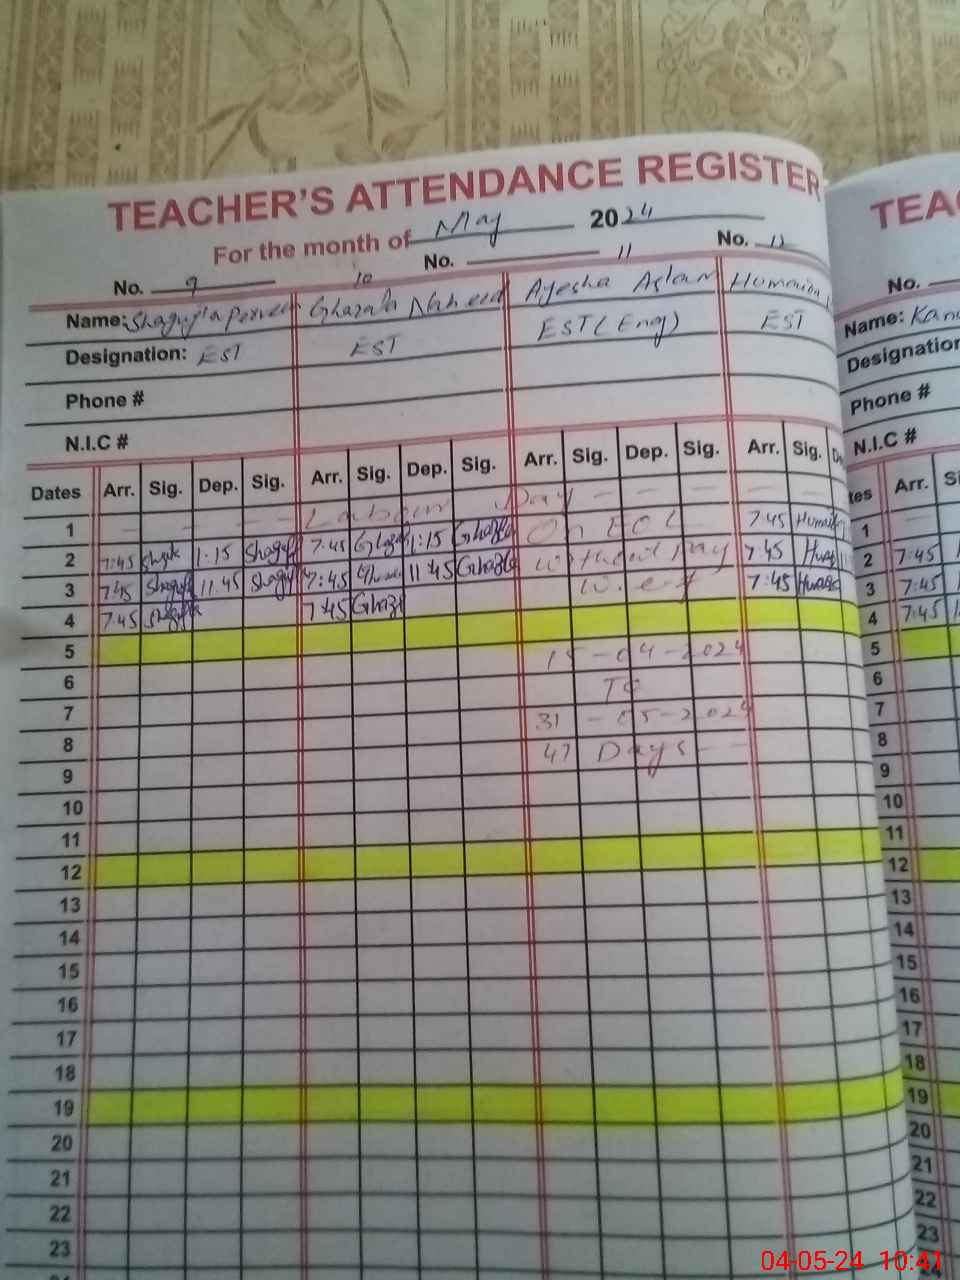 TEACHER'S ATTENDANCE REGISTER
TEA
For the month of May 2024
No. 9 10 No. 11 No. 12
No.
Name: Shagufta Perveen Ghazala Naheed Ayesha Aslam Humaira
Name:
Designation: EST EST EST (Eng) EST
Designation
Phone #
Phone #
N.I.C #
N.I.C #
Dates Arr. Sig. Dep. Sig. Arr. Sig. Dep. Sig. Arr. Sig. Dep. Sig. Arr. Sig.
tes Arr. S
1 - - - - Labour Day - - - -
2 7:45 1:15 7:45 1:15 On EOL 7:45
3 7:45 11:45 7:45 11:45 without pay 7:45
4 7:45 7:45 w.e.f 7:45
5
6 15-04-2024
7 To
8 31-05-2024
9 47 Days - -
10
11
12
13
14
15
16
17
18
19
20
21
22
23
1
2 7:45
3 7:45
4 7:45
5
6
7
8
9
10
11
12
13
14
15
16
17
18
19
20
21
22
23
04-05-24 10:41